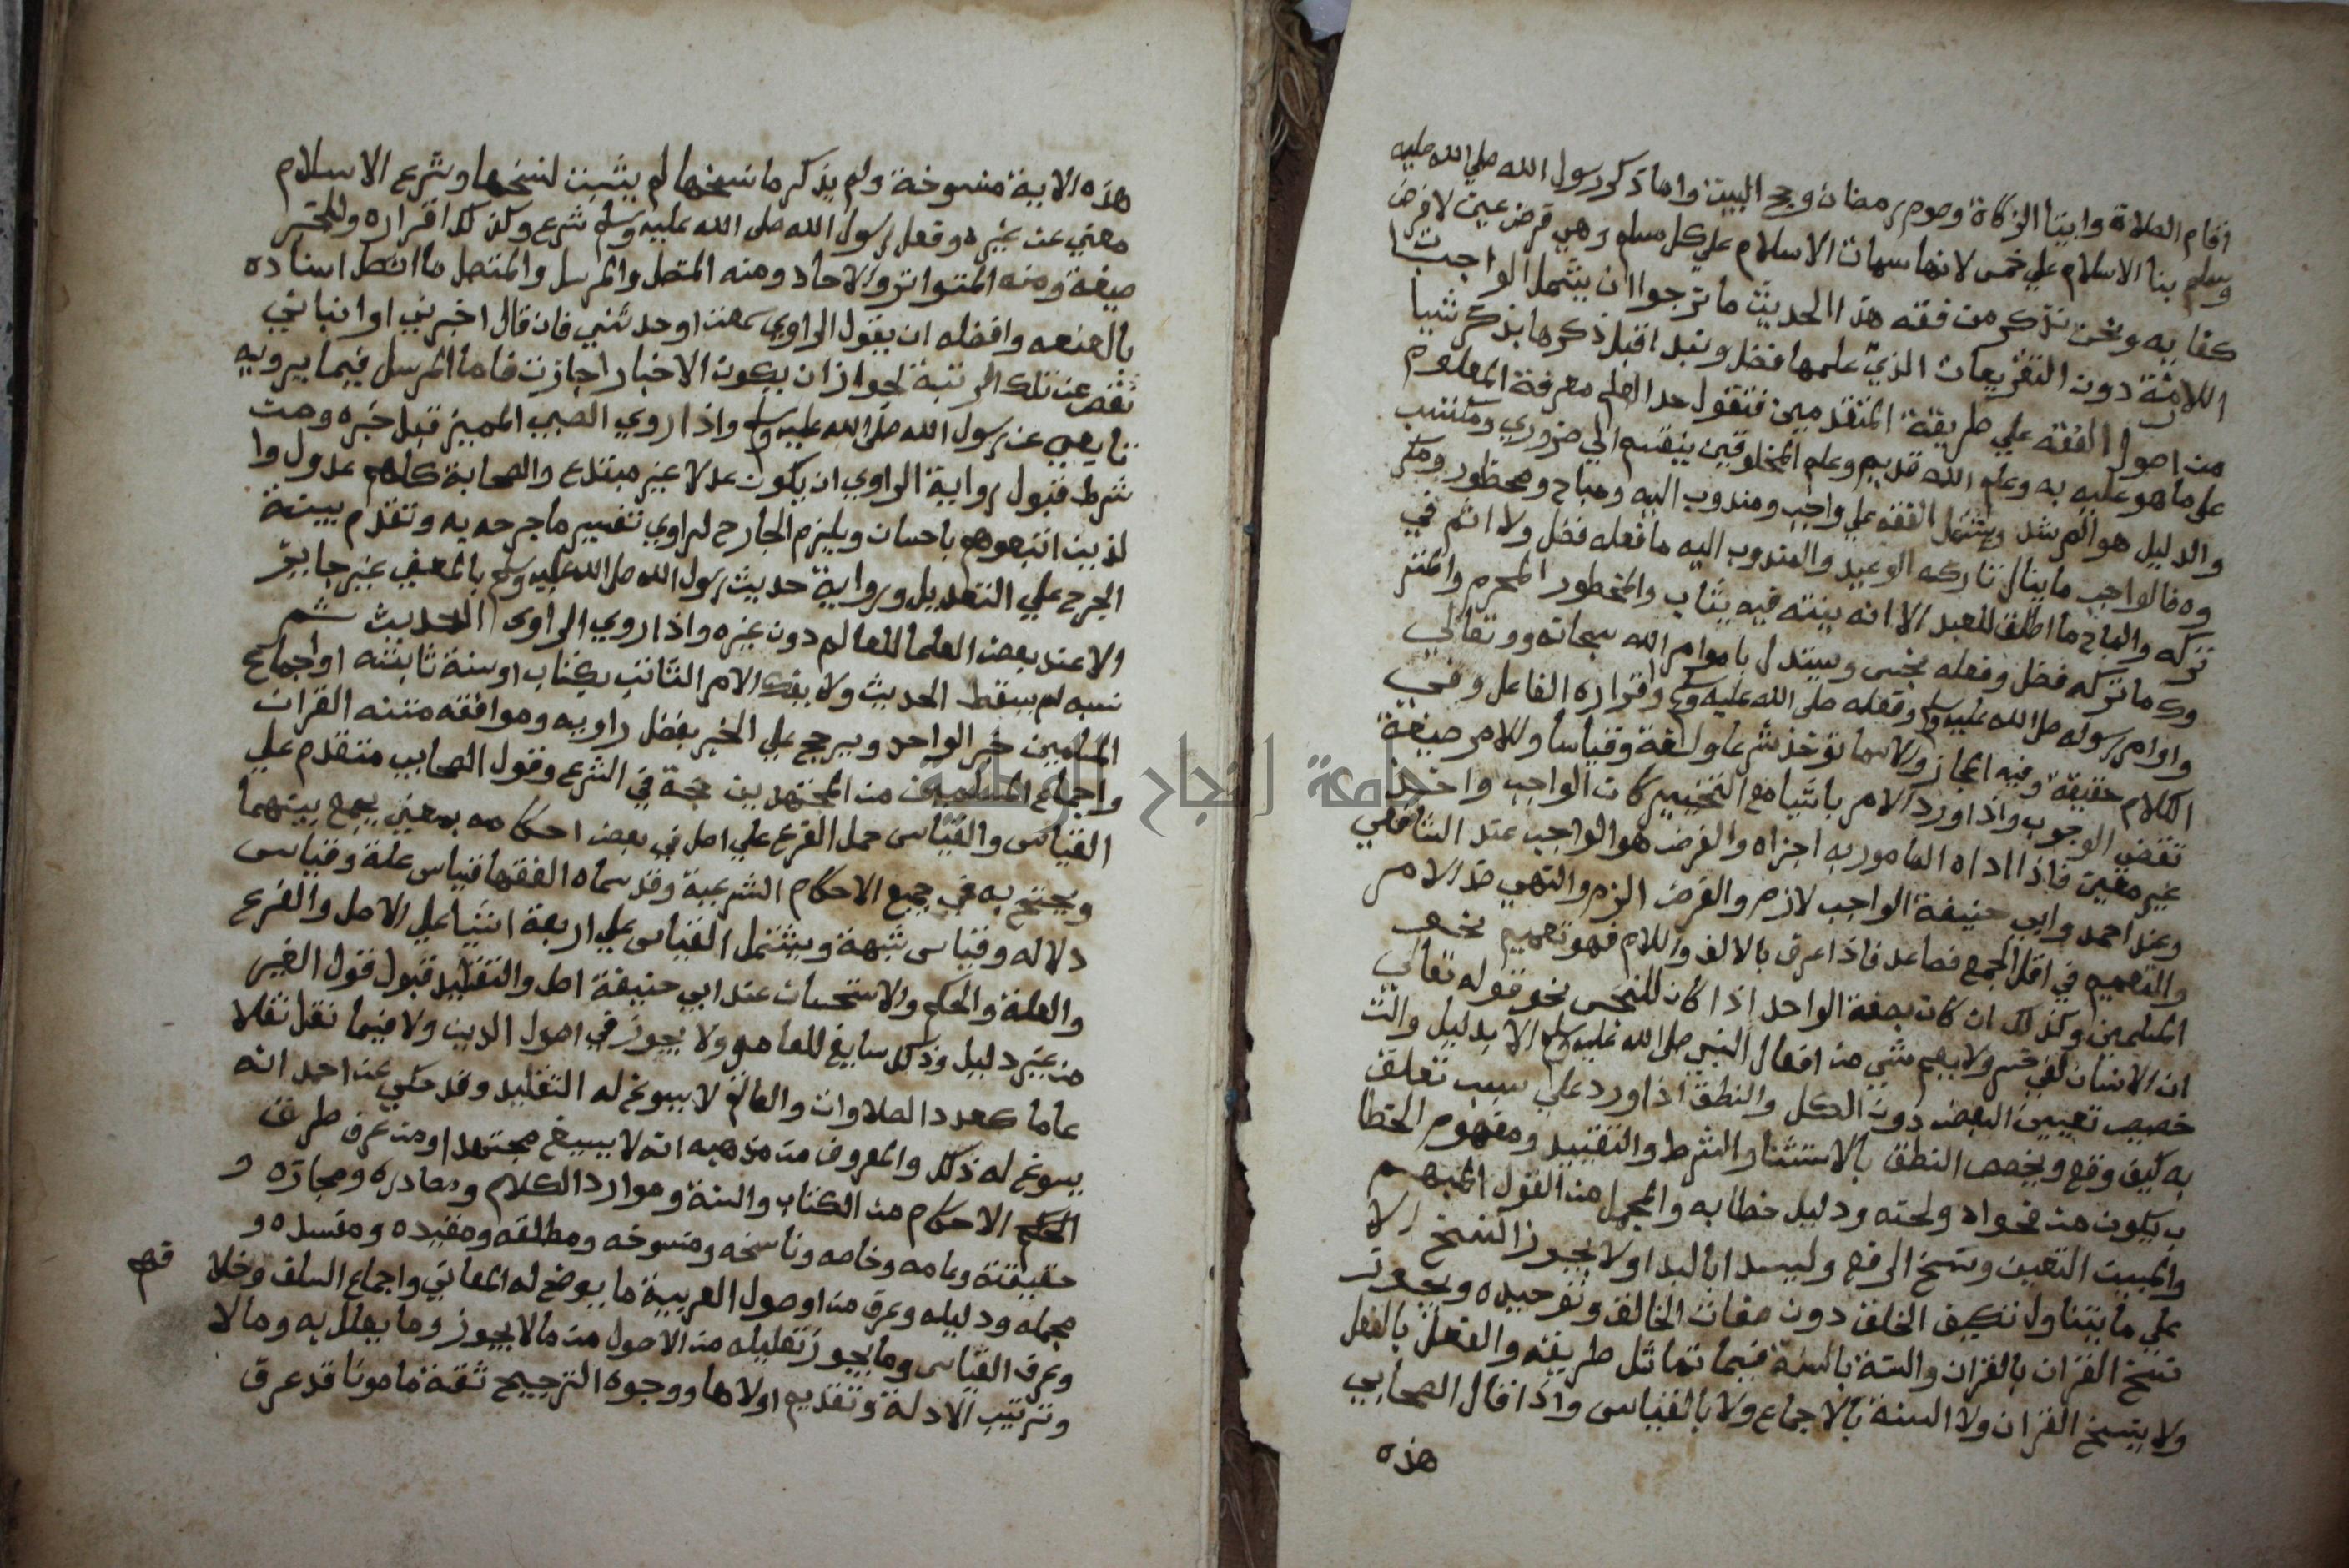 اقام الصلاة وايتا الزكاة وصوم رمضان وحج البيت وانما ذكر رسول الله صلي الله عليه
وسلم بنا الاسلام علي خمس لانها سمات الاسلام علي كل مسلم وهي فرض عين لا فرض
كفايه ونحن نذكر من فقه هذا الحديث ما نرجوا ان يشمل الواجب
اللامة دون التفريعات الذي علمها فضل ونبدا قبل ذكرها بذكر شيا
من اصول الفقه علي طريقة المتقدمين فنقول حد العلم معرفة المعلوم
علي ما هو عليه به وعلم الله قديم وعلم المخلوقين ينقسم الي ضروري ومكتسب
والدليل هو المرشد ويشتمل الفقه علي واجب ومندوب اليه ومباح ومحظور ومكر
وه فالواجب ما ينال تاركه الوعيد والمندوب اليه ما فعله فضل ولا اثم في
تركه والمباح ما اطلق للعبد الا انه بنيته فيه يثاب والمحظور المحرم والمتنز
وه ما تركه فضل وفعله بخس ويستدل باوامر الله سبحانه وتعالي
واوامر رسوله صلي الله عليه وسلم وفعله صلي الله عليه وسلم واقراره الفاعل وفي
الكلام حقيقة وفيه المجاز والاسما تؤخذ شرعا ولغة وقياسا وللامر صيغة
تقتضي الوجوب واذا ورد الامر باشيا مع التخيير كان الواجب واحد
غير معين فاذا اداه المامور به اجزاه والفرض هو الواجب عند الشافعي
وعند احمد وابي حنيفة الواجب لازم والفرض الزم والنهي ضد الامر
والتعميم في اقل الجمع فصاعد فاذا عرف بالالف واللام فهو تعميم نحو
المسلمين وكذلك ان كان بصفة الواحد اذا كان للجنس نحو قوله تعالي
ان الانسان لفي خسر ولا يعم شي من افعال النبي صلي الله عليه وسلم الا بدليل والت
خصيص تعيين البعض دون الكل والنطق اذا ورد علي سبب تعلق
به كيف وقع ويخصص النطق بالاستثنا والشرط والتقييد ومفهوم الخطا
ب يكون من فحواه ولحنه ودليل خطابه والمجمل من القول المبهم
والمبين النعين ونسخ الرفع وليس ابالبدا ولا يجوز النسخ الا
علي ما يتناول تكليف الخلق دون صفات الخالق وتوحيده ويجوز
نسخ القران بالقران والسنة بالسنة فيما تماثل طريقه والفعل بالفعل
ولا ينسخ القران ولا السنة بالاجماع ولا بالقياس واذا قال الصحابي
هذه
هذه الاية منسوخة ولم يذكر ما نسخها لم يثبت نسخها وشرع الاسلام
مغني عن غيره وفعل رسول الله صلي الله عليه وسلم شرع وكذلك اقراره وللخبر
صيغة ومنه المتواتر والاحاد ومنه المتصل والمرسل والمتصل ما اتصل اسناده
بالعنعنه وافضله ان يقول الراوي سمعت او حدثني فان قال اخبرني او انباني
نقص عن تلك الرتبة لجواز ان يكون الاخبار اجازت فاما المرسل فيما يرويه
تابعي عن رسول الله صلي الله عليه وسلم واذا روي الصبي المميز قبل خبره ومن
شرط قبول رواية الراوي ان يكون عدلا غير مبتدع والصحابة كلهم عدول وا
لذين اتبعوهم باحسان ويلزم الجارح لراوي تفسير ما جرحه به وتقدم بينة
الجرح علي التعديل ورواية حديث رسول الله صلي الله عليه وسلم بالمعني غير جايز
الا عند بعض العلما للعالم دون غيره واذا روي الراوي الحديث ثم
نسيه لم يسقط الحديث ولا يفك الامر الثابت بكتاب او سنة ثابتته او اجماع
المسلمين خبر الواحد ويرجح علي الخبر بفضل راويه وموافقه متنه القران
واجماع المسلمين من المجتهدين حجة في الشرع وقول الصحابي متقدم علي
القياس والقياس حمل الفرع علي اصل في بعض احكامه بمعني يجمع بينهما
ويحتج به في جميع الاحكام الشرعية وقد سماه الفقها قياس علة وقياس
دلاله وقياس شبهة ويشتمل القياس علي اربعة اشيا علي الاصل والفرع
والعلة والحكم والاستحسان عند ابي حنيفة اصل والتقليد قبول قول الغير
من غير دليل وذلك سايغ للعامي ولا يجوز في اصول الدين ولا فيما نقل نقلا
عاما كعدد الصلاوات والعالم لا يسوغ له التقليد وقد حكي عن احمد انه
يسوغ له ذلك والمعروف من مذهبه انه لا يسيغ مجتهد او من عرف طرق
الحكم الاحكام من الكتاب والسنة وموارد الكلام ومصادره ومجازه و
حقيقتة وعامه وخاصه وناسخه ومنسوخه ومطلقه ومقيده ومفسده و
مجمله ودليله وعرف من اوصول العربية ما يوضح له المعاني واجماع السلف وخلا
فهم
وعرف القياس وما يجوز تعليله من الاصول من ما لا يجوز وما يعلل به وما لا
وترتيب الادلة وتقديم اولاها ووجوه الترجيح ثقة مامونا قد عرف
جامعة النجاح الوطنية